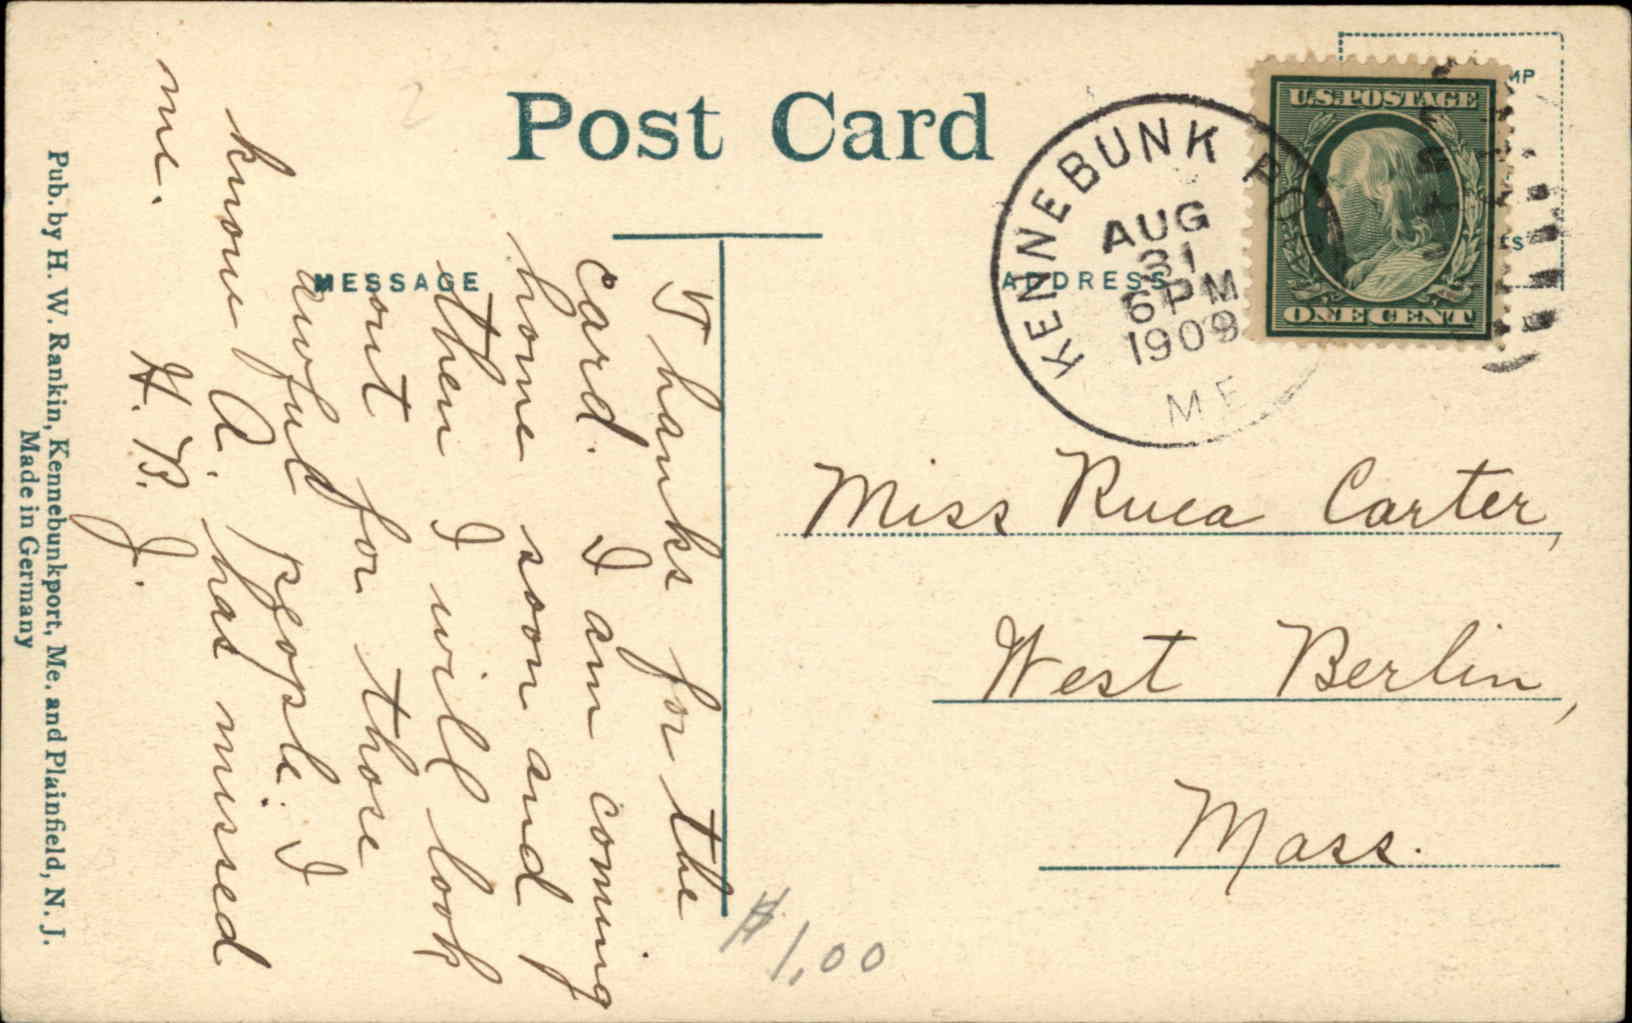 Post Card
MESSAGE
ADDRESS
U.S. POSTAGE
ONE CENT
KENNEBUNK PO
AUG
31
6 PM
1909
ME
Thanks for the
card. I am coming
home soon and
then I will look
out for those
awful people. I
know A. has missed
me.
H. B. J.
Miss Ruea Carter,
West Berlin,
Mass.
$1,00
Pub. by H. W. Rankin, Kennebunkport, Me. and Plainfield, N. J.
Made in Germany